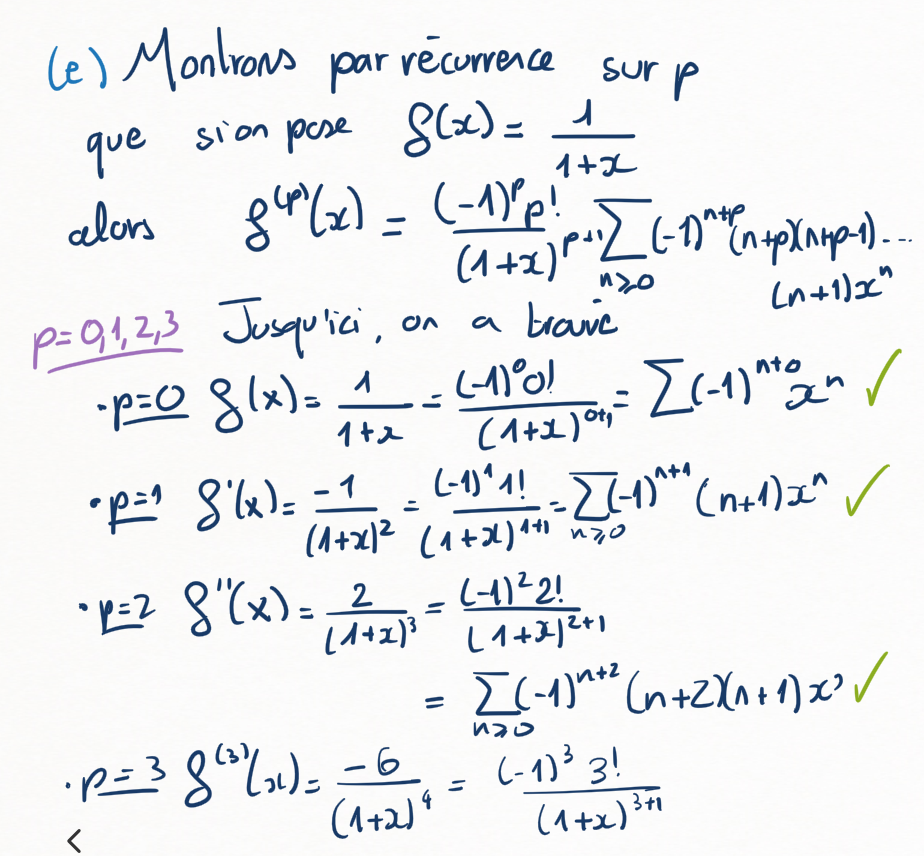 (e) Montrons par récurrence sur p
que si on pose f(x) = 1/(1+x)
alors f^(p)(x) = (-1)^p p!/(1+x)^(p+1) ∑_{n≥0} (-1)^(n+p) (n+p)(n+p-1)...
(n+1)x^n
p=0,1,2,3 Jusqu'ici, on a trouvé
• p=0 f(x) = 1/(1+x) = (-1)^0 0!/(1+x)^(0+1) = ∑ (-1)^(n+0) x^n ✓
• p=1 f'(x) = -1/(1+x)^2 = (-1)^1 1!/(1+x)^(1+1) = ∑_{n≥0} (-1)^(n+1) (n+1) x^n ✓
• p=2 f''(x) = 2/(1+x)^3 = (-1)^2 2!/(1+x)^(2+1)
= ∑_{n≥0} (-1)^(n+2) (n+2)(n+1) x^n ✓
• p=3 f^(3)(x) = -6/(1+x)^4 = (-1)^3 3!/(1+x)^(3+1)